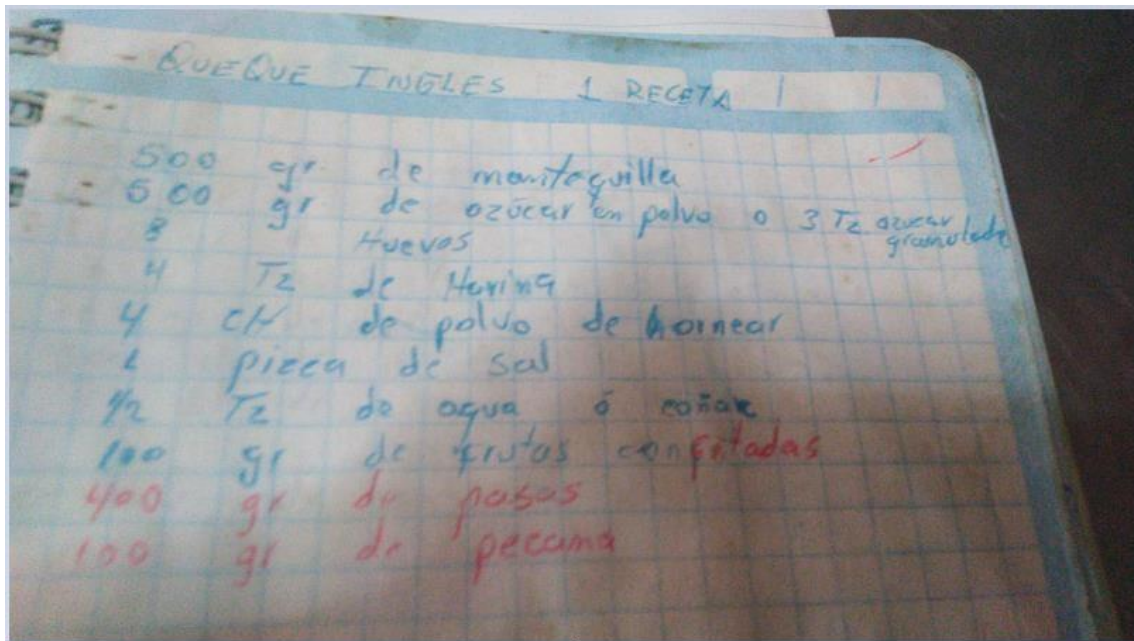 - QUEQUE INGLES 1 RECETA
500 gr de mantequilla
500 gr de azúcar en polvo o 3 Tz azucar granulada
8 Huevos
4 Tz de Harina
4 CH de polvo de hornear
1 pizca de sal
1/2 Tz de agua ó coñac
100 gr de frutas confitadas
400 gr de pasas
100 gr de pecana